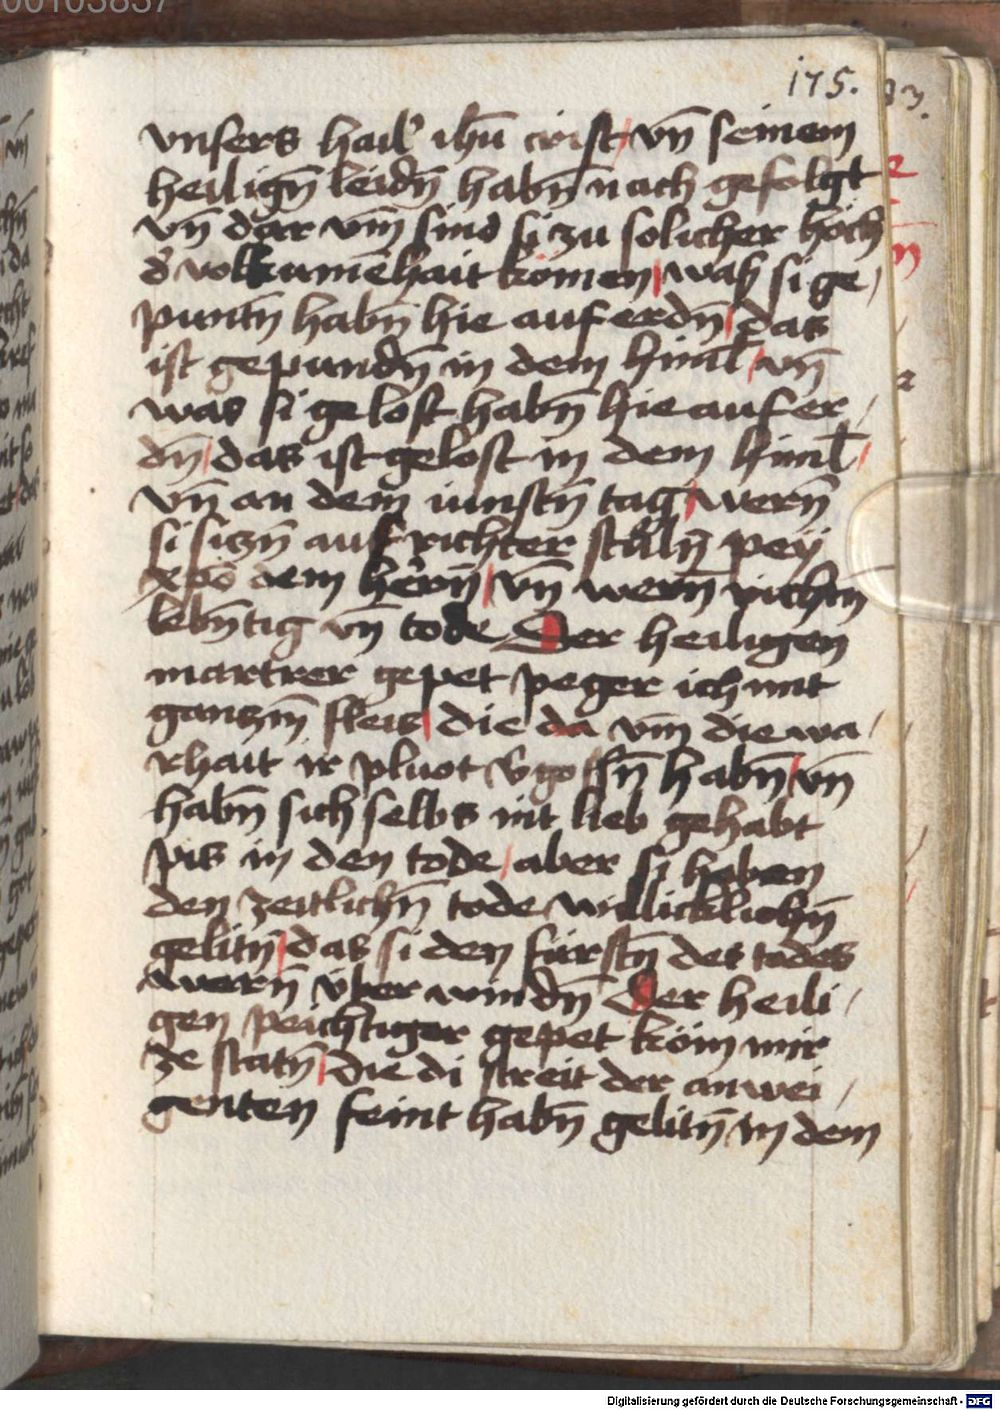 175.
vnsers hail' ihū crist / vn̄ seinem
heilign̄ leidn̄ habn̄ nach gefolgt
vn̄ dar vm̄ sind si zu solicher höch
d' volkumēhait komen / was si ge /
puntn̄ habn̄ hie auf erdn̄ / das
ist gepundn̄ in dem himl̄ / vn̄
was si gelost habn̄ hie auf er /
dn̄ / das ist gelost in dem himl̄ /
vn̄ an dem iunstn̄ tag / wern̄
si siczn̄ auf richter stůln̄ pey
xpo dem hern̄ / vn̄ wern̄ richtn̄
lebn̄tig vn̄ tode Der heiligen
martrer gepet peger ich mit
ganczm̄ fleis / die da vm̄ die wa /
rhait ir pluot v'gossn̄ habn̄ / vn̄
habn̄ sich selbs nit lieb gehabt
pis in den tode / aber si haben
den zeitlichn̄ tode willicklichn̄
gelitn̄ / das si den fürstn̄ des todes
wern̄ über windn̄ Der heili /
gen peichtiger gepet köm mir
ze statn̄ / die di streit der anwei /
genten feint habn̄ gelitn̄ in dem
Digitalisierung gefördert durch die Deutsche Forschungsgemeinschaft - DFG